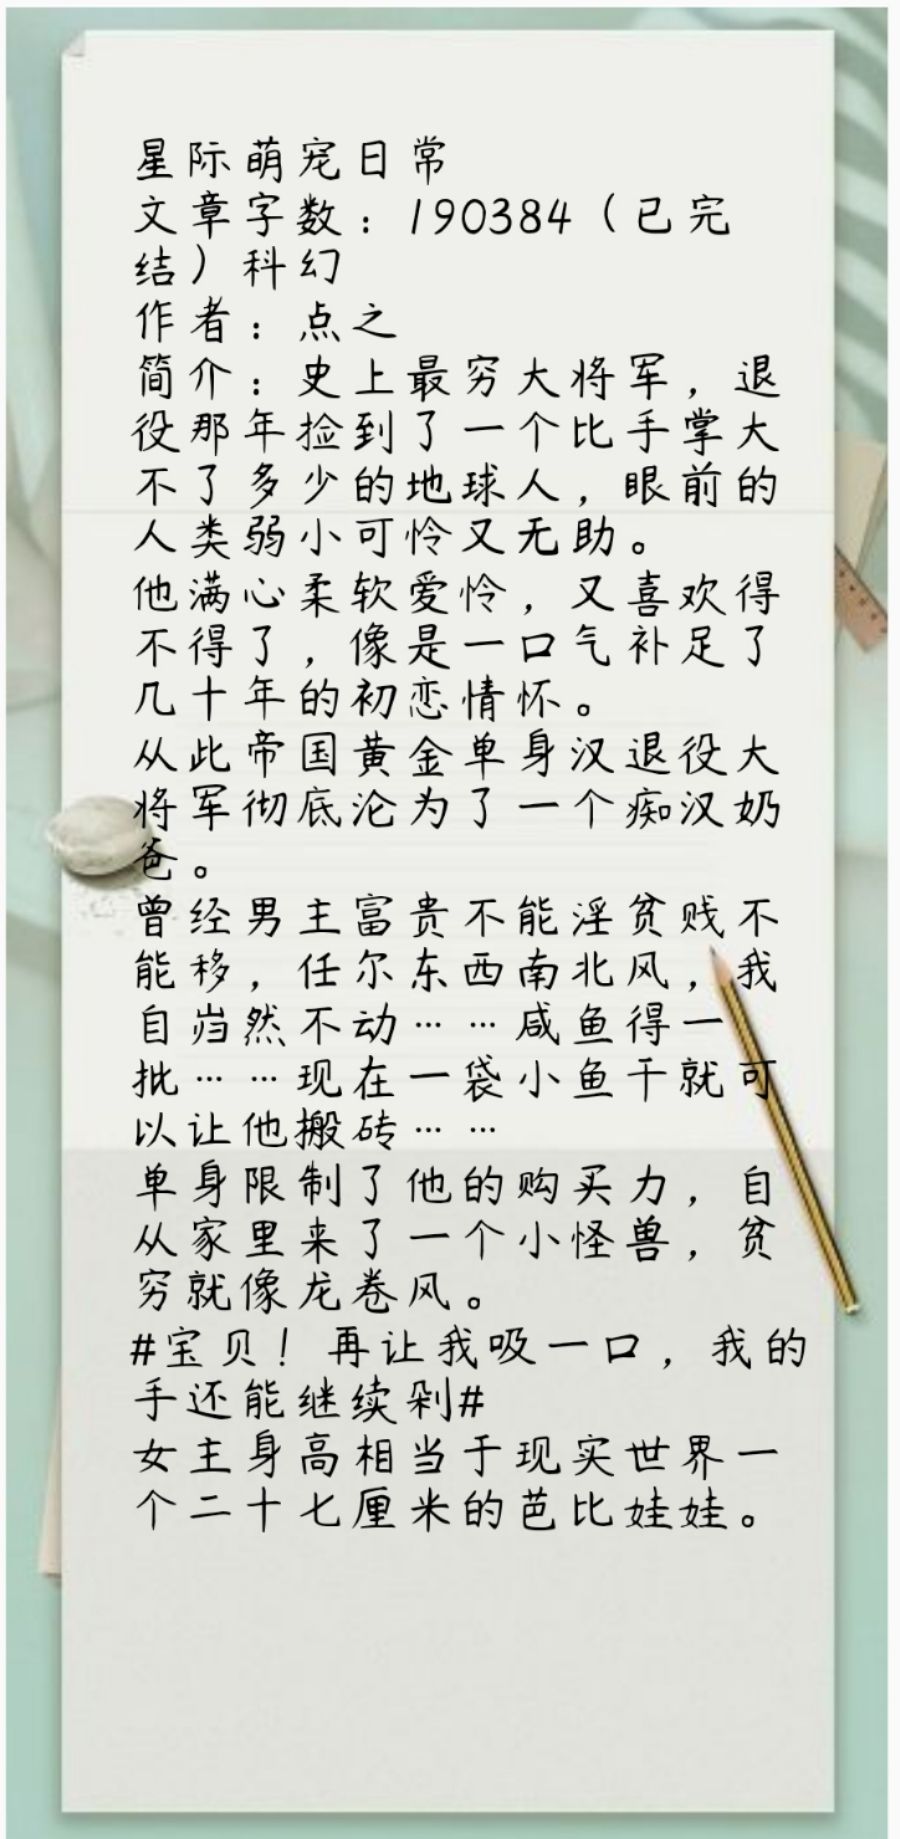 星际萌宠日常
文章字数：190384（已完
结）科幻
作者：点之
简介：史上最穷大将军，退
役那年捡到了一个比手掌大
不了多少的地球人，眼前的
人类弱小可怜又无助。
他满心柔软爱怜，又喜欢得
不得了，像是一口气补足了
几十年的初恋情怀。
从此帝国黄金单身汉退役大
将军彻底沦为了一个痴汉奶
爸。
曾经男主富贵不能淫贫贱不
能移，任尔东西南北风，我
自岿然不动……咸鱼得一
批……现在一袋小鱼干就可
以让他搬砖……
单身限制了他的购买力，自
从家里来了一个小怪兽，贫
穷就像龙卷风。
#宝贝！再让我吸一口，我的
手还能继续剁#
女主身高相当于现实世界一
个二十七厘米的芭比娃娃。